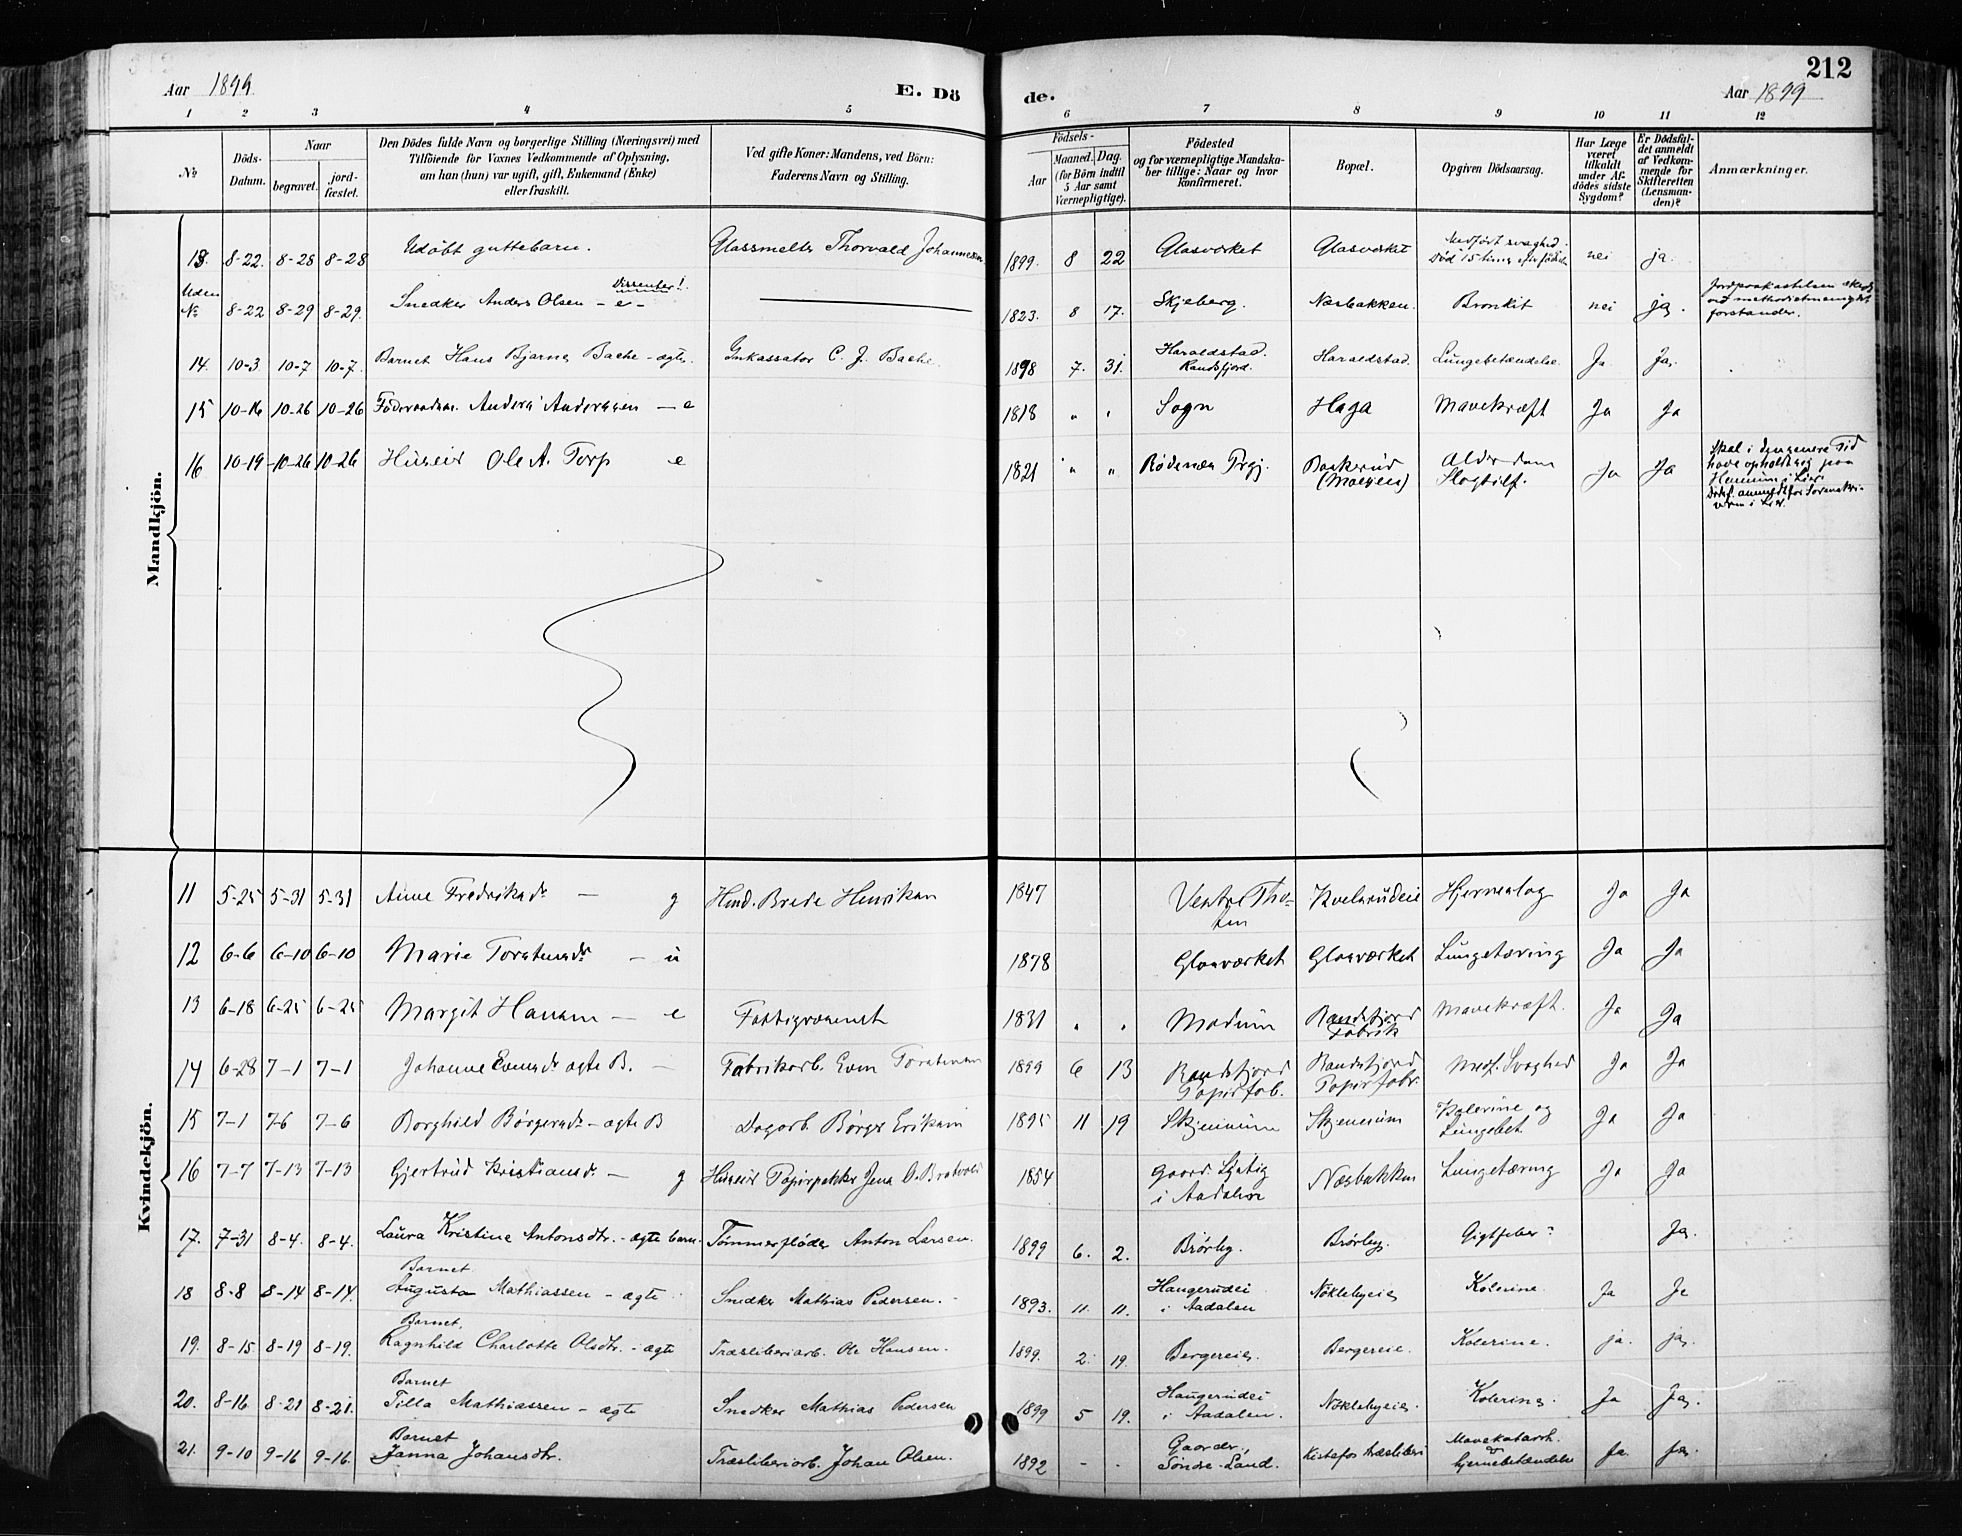 212
Aar 1899.
E. Dö
de.
Aar 1899
1 2 3 4 5 6 7 8 9 10 11 12
No
Döds-Datum.
Naar
begravet.
jord-fæstet.
Den Dödes fulde Navn og borgerlige Stilling (Næringsvei) med
Tilföiende for Voxnes Vedkommende af Oplysning,
om han (hun) var ugift, gift, Enkemand (Enke)
eller fraskilt.
Ved gifte Koner: Mandens, ved Börn:
Faderens Navn og Stilling.
Födsels-
Aar
Maaned. Dag.
(for Börn indtil
5 Aar samt
Værnepligtige).
Födested
og for værnepligtige Mandska-
ber tillige: Naar og hvor
konfirmeret.
Bopæl.
Opgiven Dödsaarsag.
Har Læge
været
tilkaldt
under Af-
dödes sidste
Sygdom?
Er Dödsfal-
det anmeldt
af Vedkom-
mende for
Skifteretten
(Lensman-
den)?
Anmærkninger.
Mandkjön.
13. 8-22. 8-28 8-28 Udöbt guttebarn. Glassmelter Thorvald Johannesen 1899. 8 22 Glasværket Glasværket Medfödt svaghed. Död 15 timer efter födselen nei ja.
Uden No 8-22 8-29 8-29. Snedker Anders Olsen - e - Dissenter! 1823. 8 17. Skjeberg. Næsbakken. Bronkit nei ja.
forstander.
14. 10-3 10-7 10-7. Barnet Hans Bjarne Bache - ægte. Inkassator C. J. Bache. 1898 7. 31. Haraldstad. Randsfjord. Haraldstad. Lungebetændelse. Ja Ja.
15 10-16 10-26 10-26 Föderaadsm. Anders Anderssen - e 1818 " " Sogn Haga Mavekræft Ja Ja
16 10-19 10-26 10-26 Huseier Ole A. Torp e 1821 " " Rödenæs Prgj. Alderdom Slagtilf. Ja Ja
Skal i den senere Tid
have opholdt sig paa
Hennum i Lier.
Kvindekjön.
11 5-25 5-31 5-31 Anne Fredriksdr - g Hmd. Brede Henriksen 1847 Vestre Tho-
ten Hjerneslag Ja Ja
12 6-6 6-10 6-10 Marie Torstensdr - u 1878 Glasværket Glasværket Lungetæring Ja Ja
13 6-18 6-25 6-25 Margit Hansen - e Fattigvæsenet 1831 " " Modum Randsfjord Fabrik Mavekræft. Ja Ja
14 6-28 7-1 7-1 Johanne Evensdr ægte B. - Fabrikarb. Even Torstensen 1899 6 13 Randsfjord Papirfab. Randsfjord Papirfabr. Medf. Svaghed Ja Ja
15 7-1 7-6 7-6 Borghild Börgersdr - ægte B Dagarb. Börger Eriksen 1895 11 19 Skjennum Skjennum Kolerine og Lungebet. Ja Ja
16 7-7 7-13 7-13 Gjertrud Kristiansdr - g Huseier Papirpakker Jens O. 1854 i Aadalen Næsbakken Lungetæring Ja Ja
17. 7-31 8-4. 8-4. Laura Kristine Antonsdtr. - ægte barn. Tömmerflöder Anton Larsen. 1899 6. 2. Brörby. Brörby. Gigtfeber? Ja.
18 8-8 8-14 8-14. Barnet Augusta Mathiassen - ægte Snedker Mathias Pedersen. 1893. 11. 11. Haugerudei i Aadalen Nöklebyeie Kolerine. Ja Ja
19. 8-15 8-19 8-19. Barnet. Ragnhild Charlotte Olsdtr. - ægte Træsliberiarb. Ole Hansen. 1899. 2. 19. Bergereie. Bergereie. Kolerine. ja. ja.
20. 8-16 8-21 8-21. Barnet Tilla Mathiassen - ægte Snedker Mathias Pedersen 1899 5 19. Haugerudei i Aadalen. Nöklebyeie. Kolerine. Ja Ja.
21. 9-10 9-16 9-16. Barnet Janna Johansdtr. Træsliberiarb. Johan Olsen. 1892 - - Gaarder, Söndre Land. Kistefos Træsliberi Mavekatarrh. hjernebetændelse Ja. Ja.